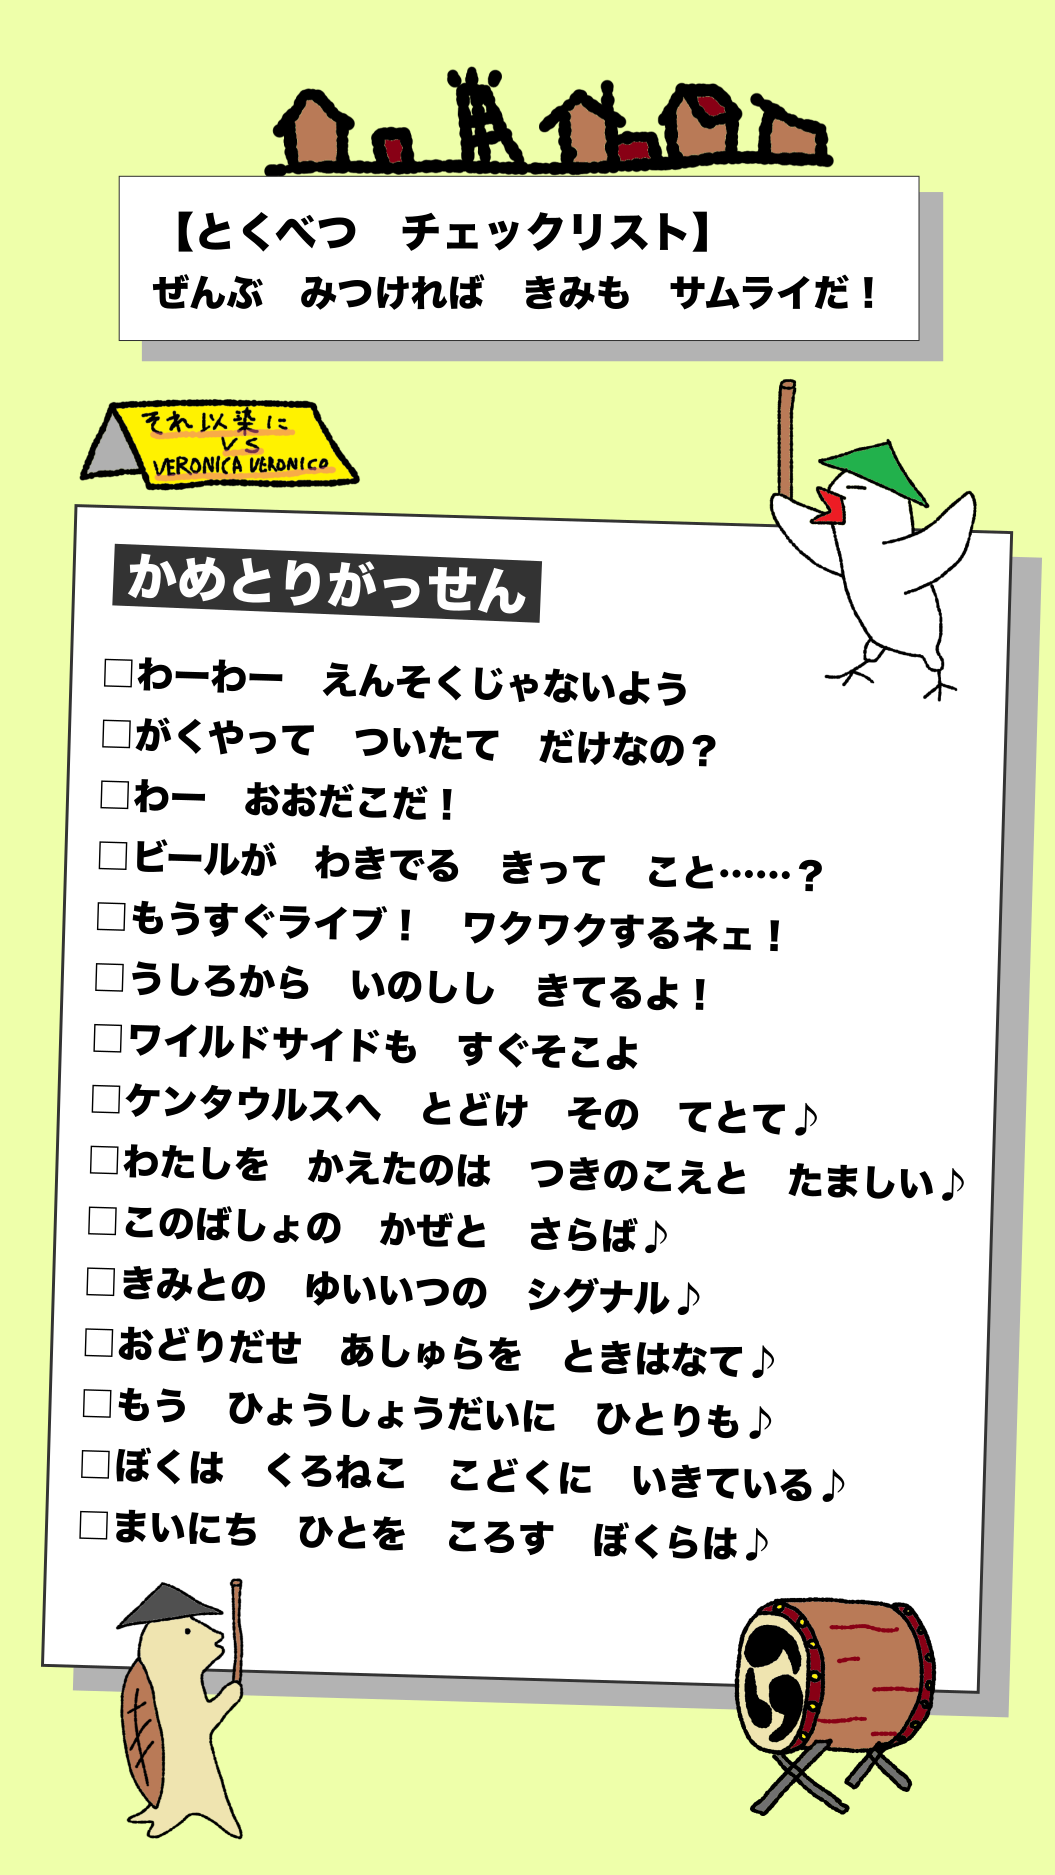 【とくべつ　チェックリスト】
ぜんぶ　みつければ　きみも　サムライだ！
それ以染に
VS
VERONICA VERONICO
かめとりがっせん
□わーわー　えんそくじゃないよう
□がくやって　ついたて　だけなの？
□わー　おおだこだ！
□ビールが　わきでる　きって　こと……？
□もうすぐライブ！　ワクワクするネェ！
□うしろから　いのしし　きてるよ！
□ワイルドサイドも　すぐそこよ
□ケンタウルスへ　とどけ　その　てとて♪
□わたしを　かえたのは　つきのこえと　たましい♪
□このばしょの　かぜと　さらば♪
□きみとの　ゆいいつの　シグナル♪
□おどりだせ　あしゅらを　ときはなて♪
□もう　ひょうしょうだいに　ひとりも♪
□ぼくは　くろねこ　こどくに　いきている♪
□まいにち　ひとを　ころす　ぼくらは♪